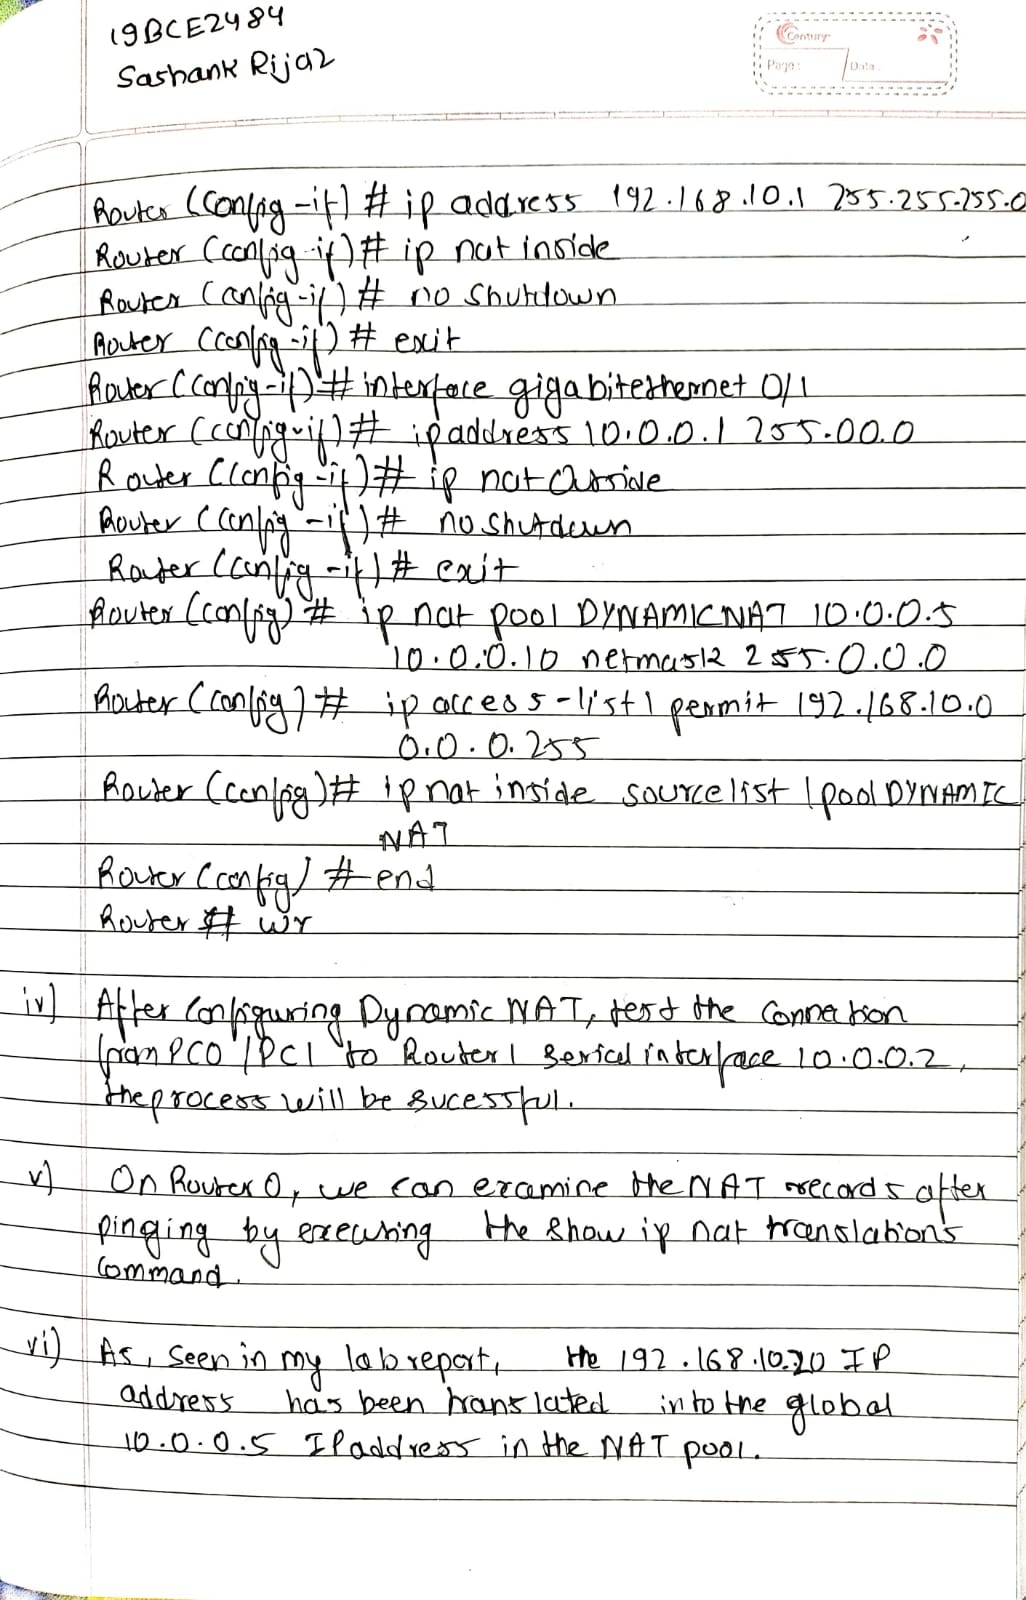 19BCE2484
Sashank Rijal
Century
Page:
Date:
Router (config-if) # ip address 192.168.10.1 255.255.255.0
Router (config-if) # ip nat inside
Router (config-if) # no shutdown
Router (config-if) # exit
Router (config-if) # interface gigabitethernet 0/1
Router (config-if) # ip address 10.0.0.1 255.00.0
Router (config-if) # ip nat outside
Router (config-if) # no shutdown
Router (config-if) # exit
Router (config) # ip nat pool DYNAMICNAT 10.0.0.5
10.0.0.10 netmask 255.0.0.0
Router (config) # ip access-list 1 permit 192.168.10.0
0.0.0.255
Router (config) # ip nat inside source list 1 pool DYNAMIC
NAT
Router (config) # end
Router # wr
iv) After Configuring Dynamic NAT, test the Connection
from PC0 / PC1 to Router 1 Serial interface 10.0.0.2,
the process will be sucessful.
v) On Router 0, we can examine the NAT records after
pinging by executing the show ip nat translations
Command.
vi) As, seen in my lab report, the 192.168.10.20 IP
address has been translated into the global
10.0.0.5 IP address in the NAT pool.